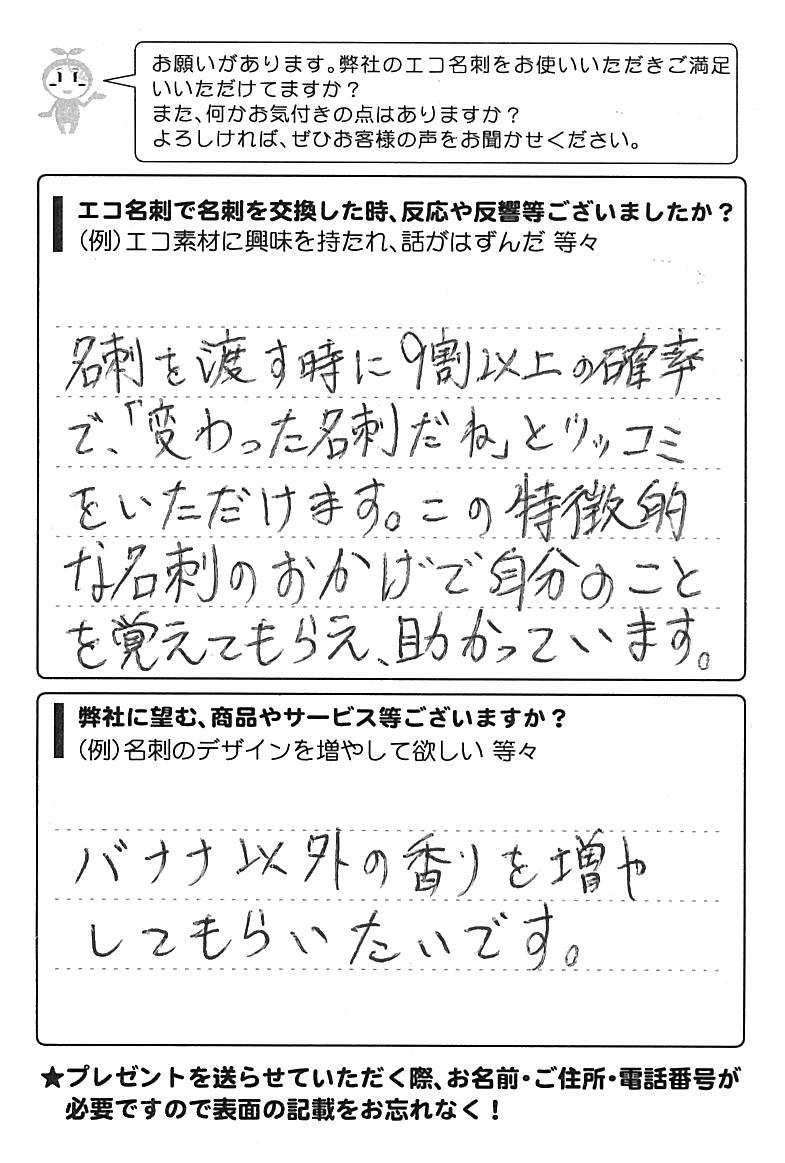 お願いがあります。弊社のエコ名刺をお使いいただきご満足
いいただけてますか？
また、何かお気付きの点はありますか？
よろしければ、ぜひお客様の声をお聞かせください。
エコ名刺で名刺を交換した時、反応や反響等ございましたか？
（例）エコ素材に興味を持たれ、話がはずんだ 等々
名刺を渡す時に9割以上の確率
で、「変わった名刺だね」とツッコミ
をいただけます。この特徴的
な名刺のおかげで自分のこと
を覚えてもらえ、助かっています。
弊社に望む、商品やサービス等ございますか？
（例）名刺のデザインを増やして欲しい 等々
バナナ以外の香りを増や
してもらいたいです。
★プレゼントを送らせていただく際、お名前・ご住所・電話番号が
必要ですので表面の記載をお忘れなく！